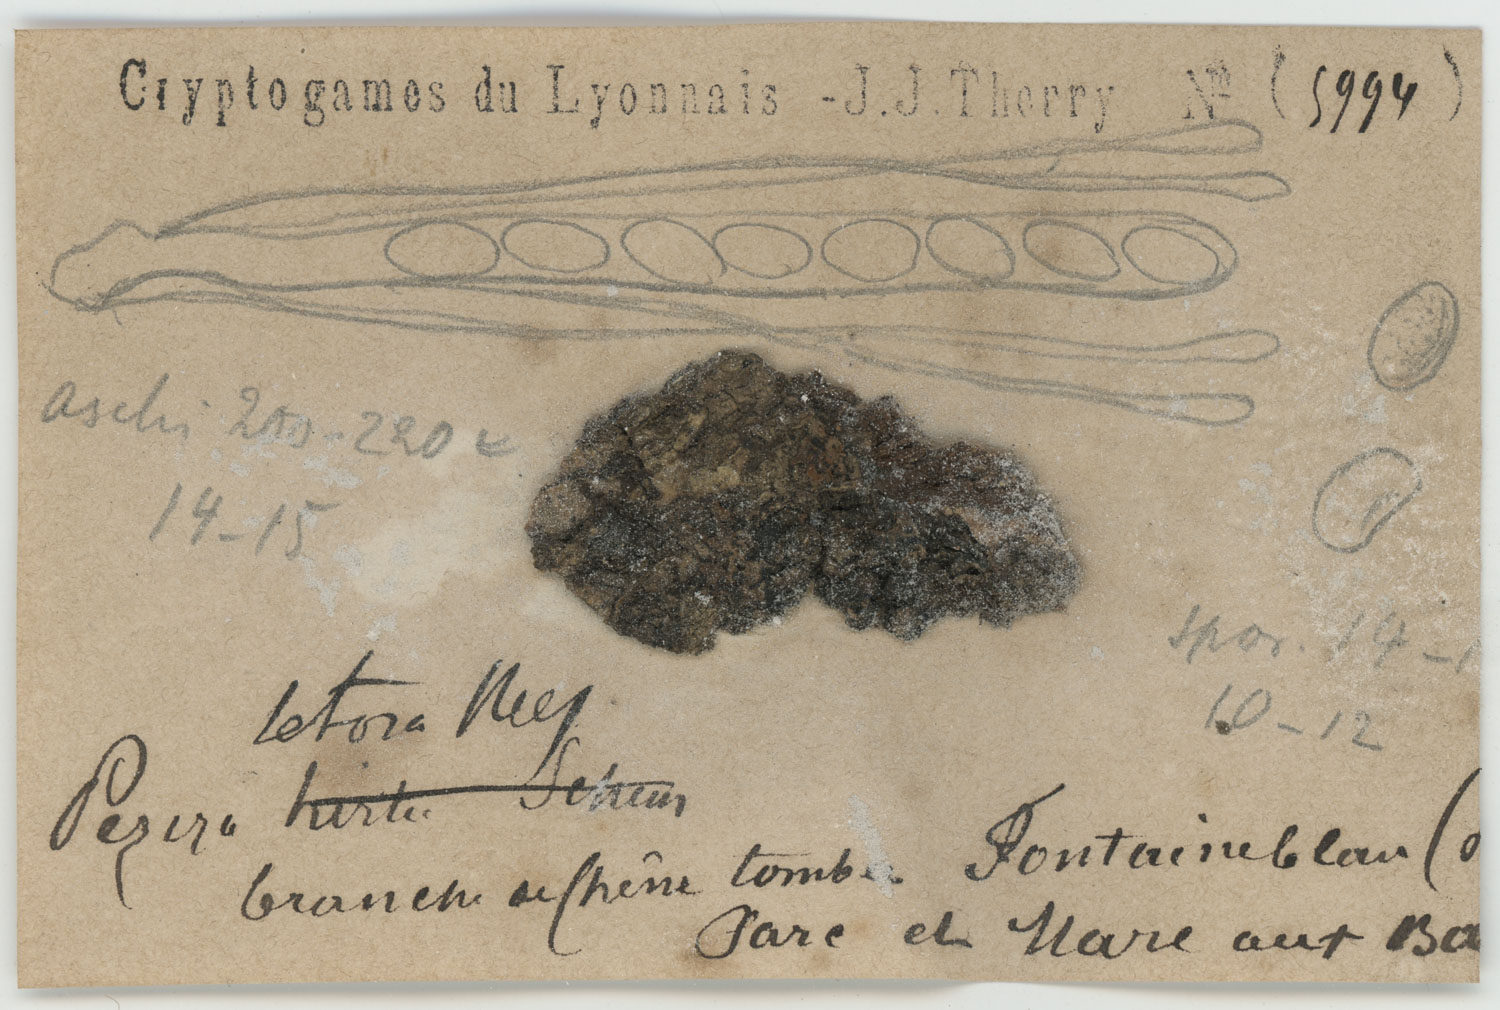 Cryptogames du Lyonnais - J.J. Therry Nº (5994)
aschi 200-220 =
14-15
spor. 14-1
10-12
Peziza hirta Schum
branche de Chêne tombée Fontainebleau (
Parc et Mare aux